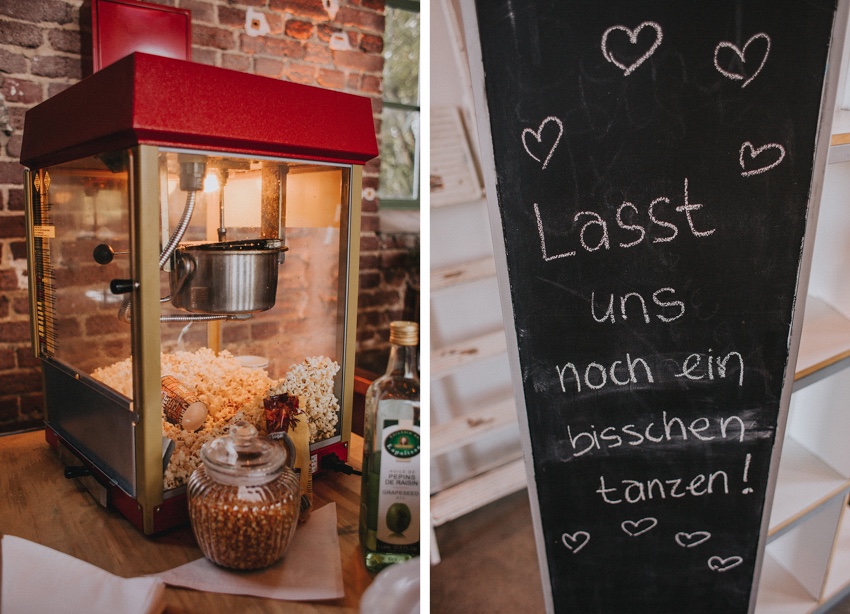 PEPINS
DE RAISIN
GRAPESEED
Lasst
uns
noch ein
bisschen
tanzen!